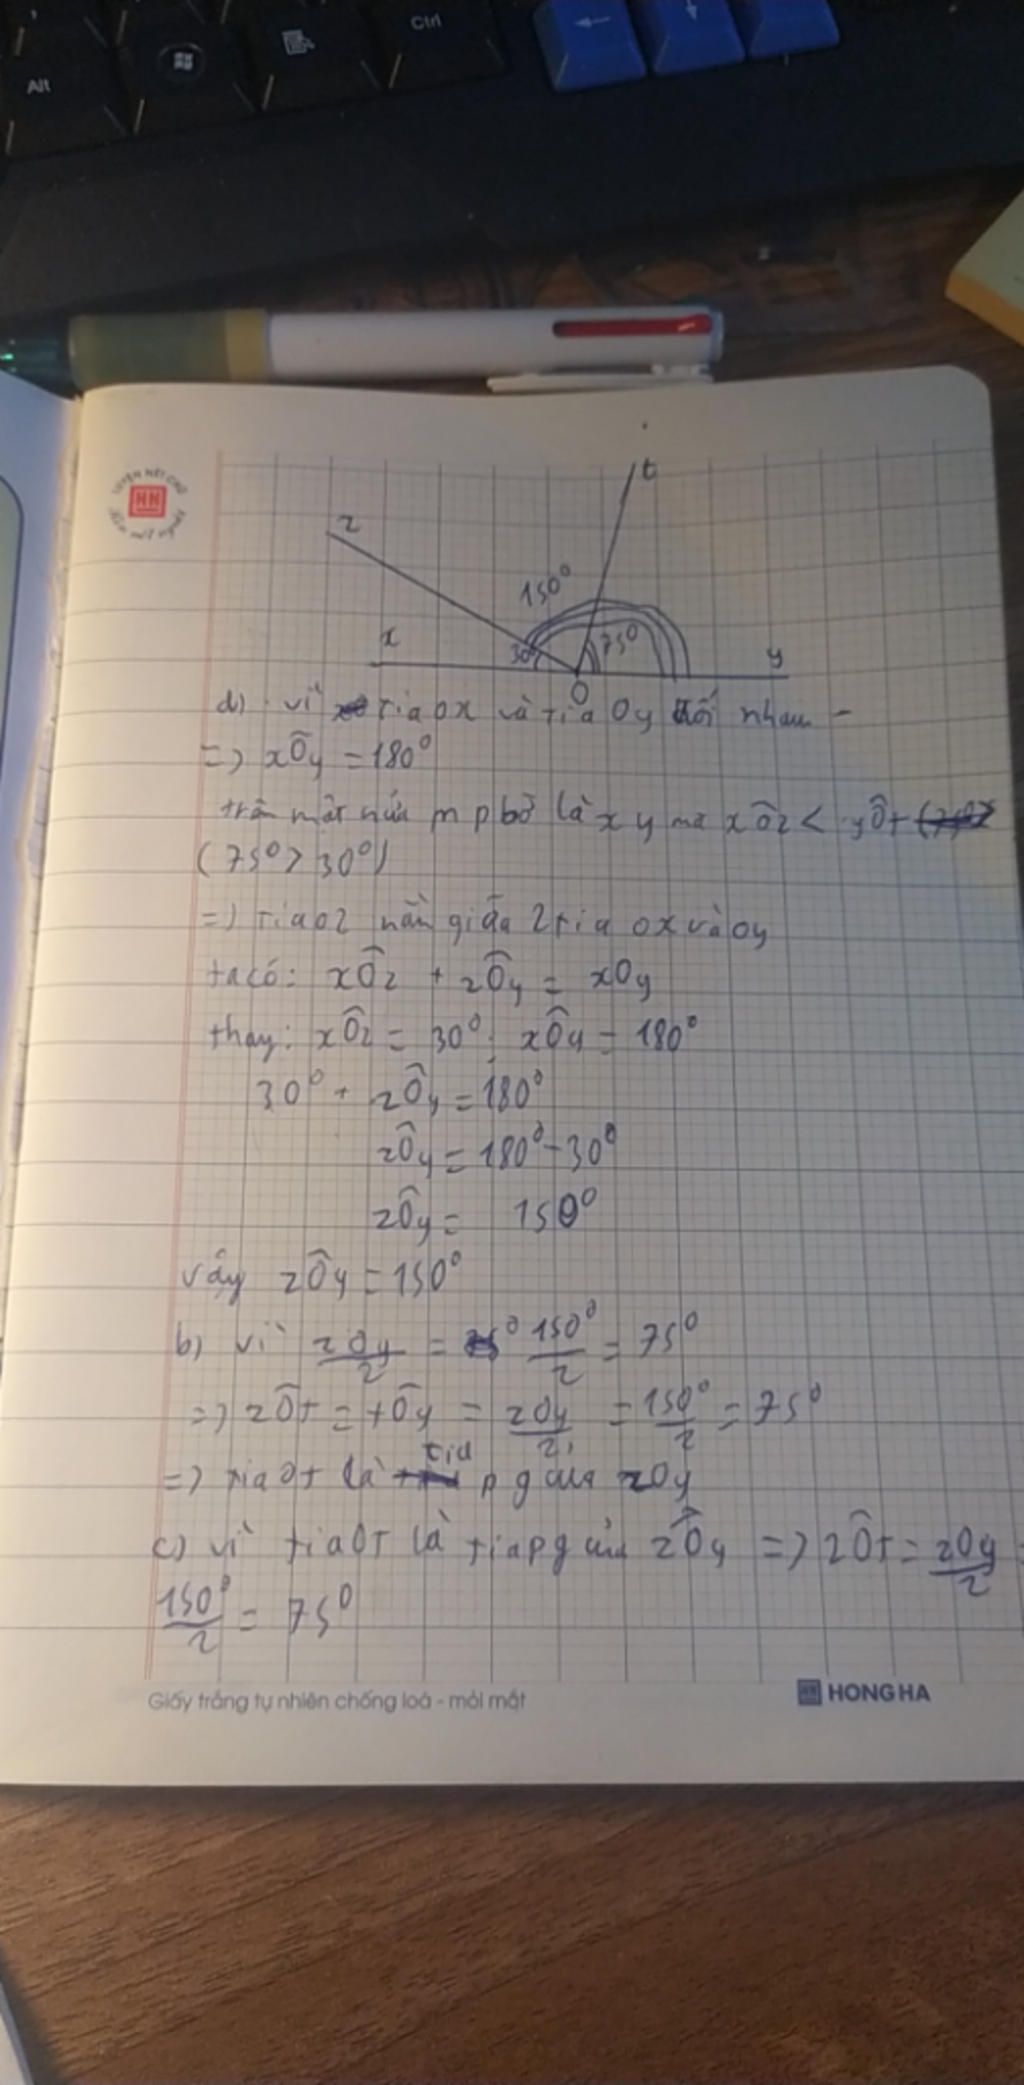 Alt
Ctrl
HN
z
t
150°
x
30°
75°
y
O
d) vì tia ox và tia Oy đối nhau -
=> xÔy = 180°
trên một nửa mp bờ là xy mà xÔz < yÔt
(75° > 30°)
=> tia oz nằn giữa 2 tia ox và oy
ta có: xÔz + zÔy = xOy
thay: xÔz = 30° ; xÔy = 180°
30° + zÔy = 180°
zÔy = 180° - 30°
zÔy = 150°
vậy zÔy = 150°
b) vì zOy/2 = 150°/2 = 75°
=> zÔt = tÔy = zOy/2 = 150°/2 = 75°
=> tia Ot là tia pg của zOy
c) vì tia Ot là tia pg của zÔy => zÔt = zOy/2 =
150°/2 = 75°
Giấy trắng tự nhiên chống loá - mỏi mắt
HONG HA